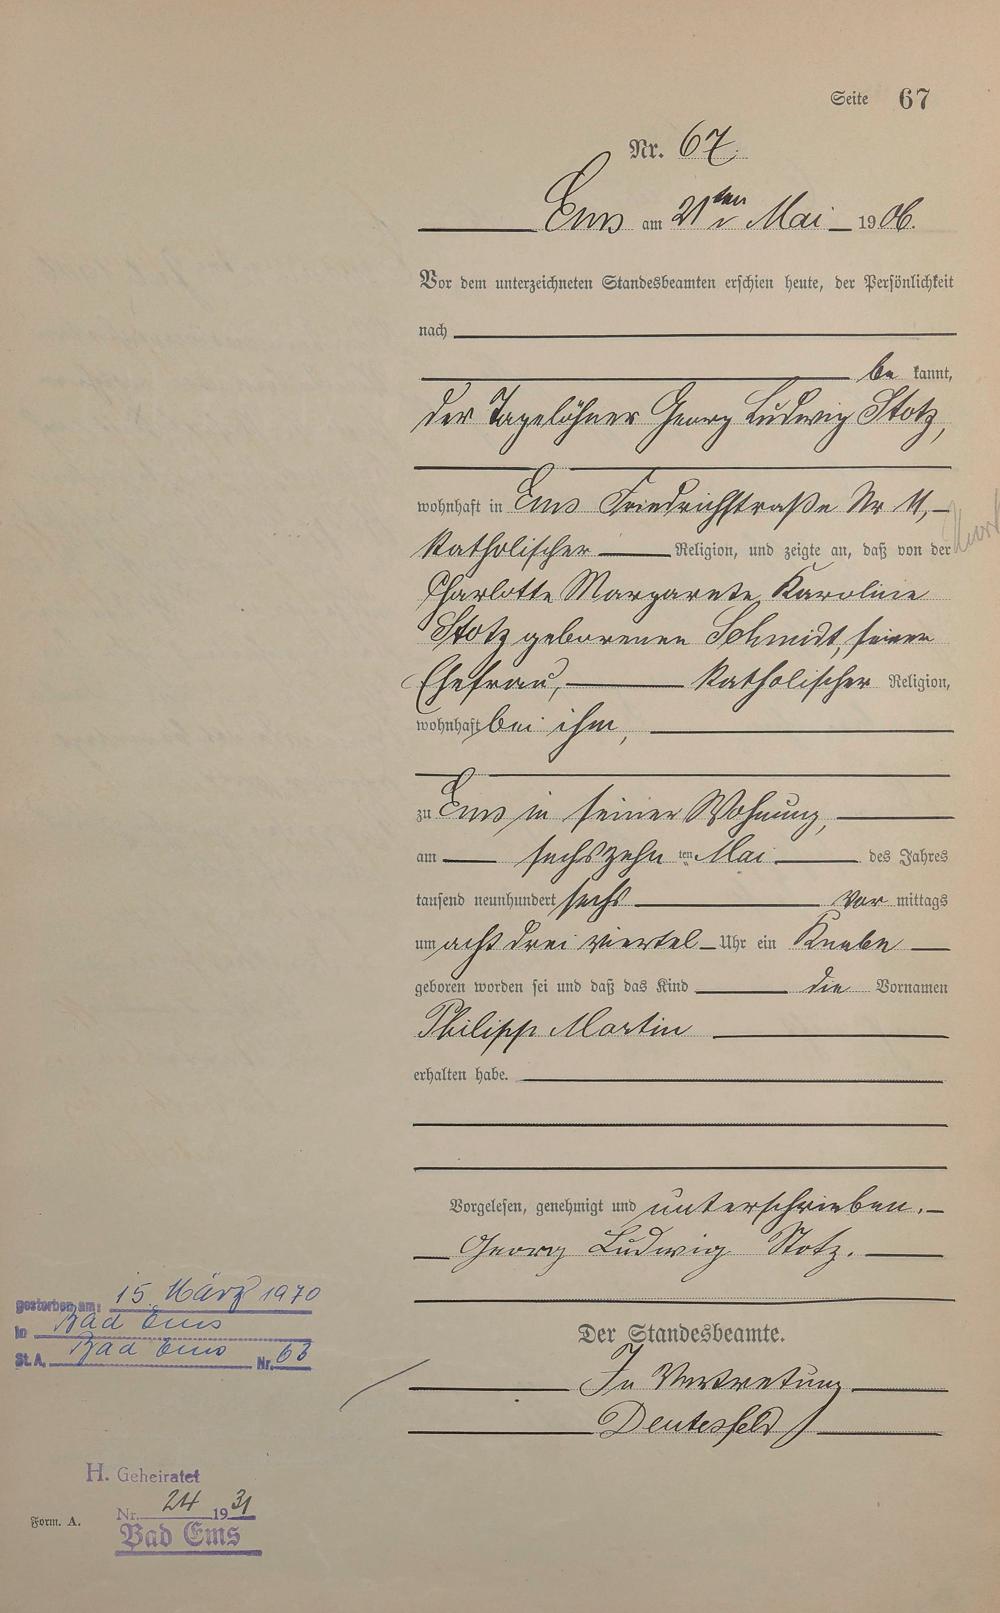 Seite 67
Nr. 67.
Ems am 21ten Mai 1906.
Vor dem unterzeichneten Standesbeamten erschien heute, der Persönlichkeit
nach
be kannt,
der Tagelöhner Georg Ludwig Stotz,
wohnhaft in Ems Friedrichstraße Nr 11,
katholischer Religion, und zeigte an, daß von der
Charlotte Margarete Karoline
Stotz geborenen Schmidt, seiner
Ehefrau, katholischer Religion,
wohnhaft bei ihm,
zu Ems in seiner Wohnung,
am sechszehn ten Mai des Jahres
tausend neunhundert sechs vor mittags
um acht drei viertel Uhr ein Knabe
geboren worden sei und daß das Kind die Vornamen
Philipp Martin
erhalten habe.
Vorgelesen, genehmigt und unterschrieben.
Georg Ludwig Stotz.
Der Standesbeamte.
In Vertretung
Deutesfeld
gestorben am: 15. März 1970
in Bad Ems
St. A. Bad Ems Nr. 63
H. Geheiratet
Nr. 24 1931
Bad Ems
Form. A.